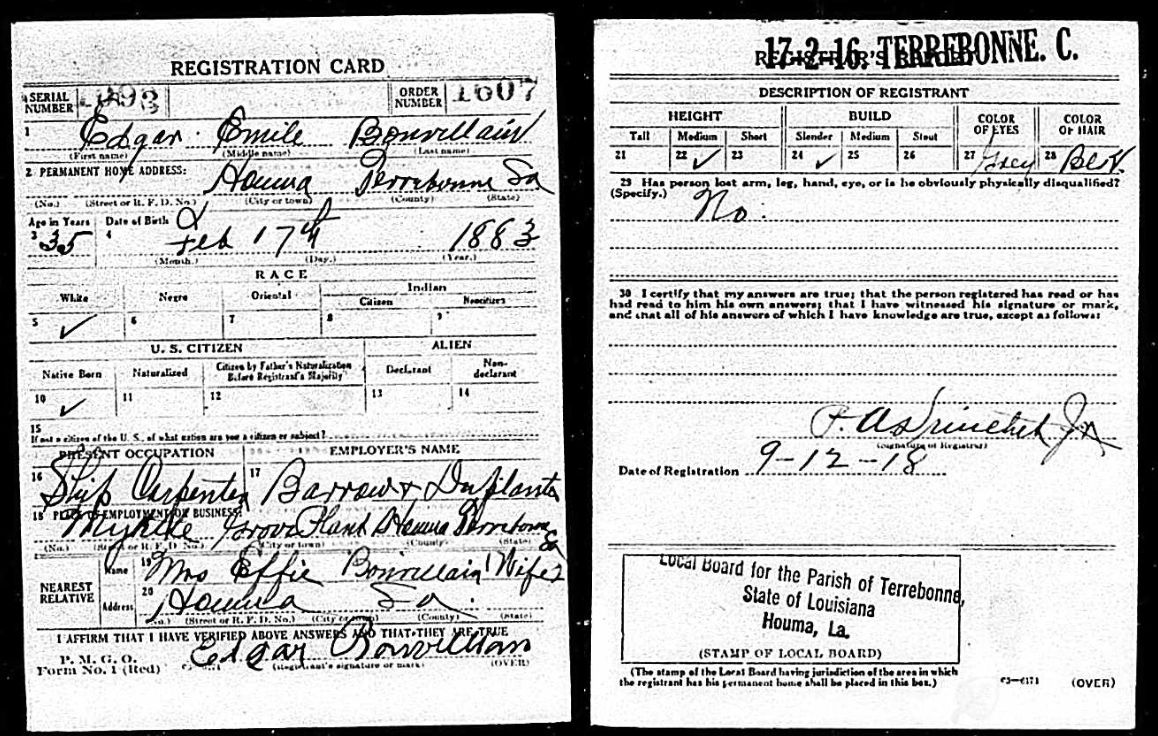 REGISTRATION CARD
SERIAL NUMBER ORDER NUMBER 1607
1 Edgar Emile Bonvillain
(First name) (Middle name) (Last name)
2 PERMANENT HOME ADDRESS: Houma Terrebonne La
(No.) (Street or R. F. D. No.) (City or town) (County) (State)
Age in Years Date of Birth
3 35 4 Feb 17th 1883
(Month.) (Day.) (Year.)
RACE
White Negro Oriental Indian
Citizen Noncitizen
5 ✓ 6 7 8 9
U. S. CITIZEN ALIEN
Native Born Naturalized Citizen by Father's Naturalization Before Registrant's Majority Declarant Non-declarant
10 ✓ 11 12 13 14
15
If not a citizen of the U. S., of what nation are you a citizen or subject?
PRESENT OCCUPATION EMPLOYER'S NAME
16 Ship Carpenter 17 Barrow & Duplantis
18 PLACE OF EMPLOYMENT OR BUSINESS:
Myrtle Grove Plant Houma Terrebonne La
(No.) (Street or R. F. D. No.) (City or town) (County) (State)
NEAREST RELATIVE
Name 19 Mrs Effie Bonvillain Wife
Address 20 Houma La.
(No.) (Street or R. F. D. No.) (City or town) (County) (State)
I AFFIRM THAT I HAVE VERIFIED ABOVE ANSWERS AND THAT THEY ARE TRUE
P. M. G. O.
Form No. 1 (Red) Edgar Bonvillain
(Registrant's signature or mark) (OVER)
17-2-16. TERREBONNE. C.
REGISTRAR'S REPORT
DESCRIPTION OF REGISTRANT
HEIGHT BUILD COLOR OF EYES COLOR OF HAIR
Tall Medium Short Slender Medium Stout
21 22 ✓ 23 24 ✓ 25 26 27 Grey 28 Blk.
29 Has person lost arm, leg, hand, eye, or is he obviously physically disqualified?
(Specify.) No.
30 I certify that my answers are true; that the person registered has read or has
had read to him his own answers; that I have witnessed his signature or mark,
and that all of his answers of which I have knowledge are true, except as follows:
Jr
(Signature of Registrar)
Date of Registration 9-12-18
Local Board for the Parish of Terrebonne,
State of Louisiana
Houma, La.
(STAMP OF LOCAL BOARD)
(The stamp of the Local Board having jurisdiction of the area in which
the registrant has his permanent home shall be placed in this box.)
03—6171 (OVER)